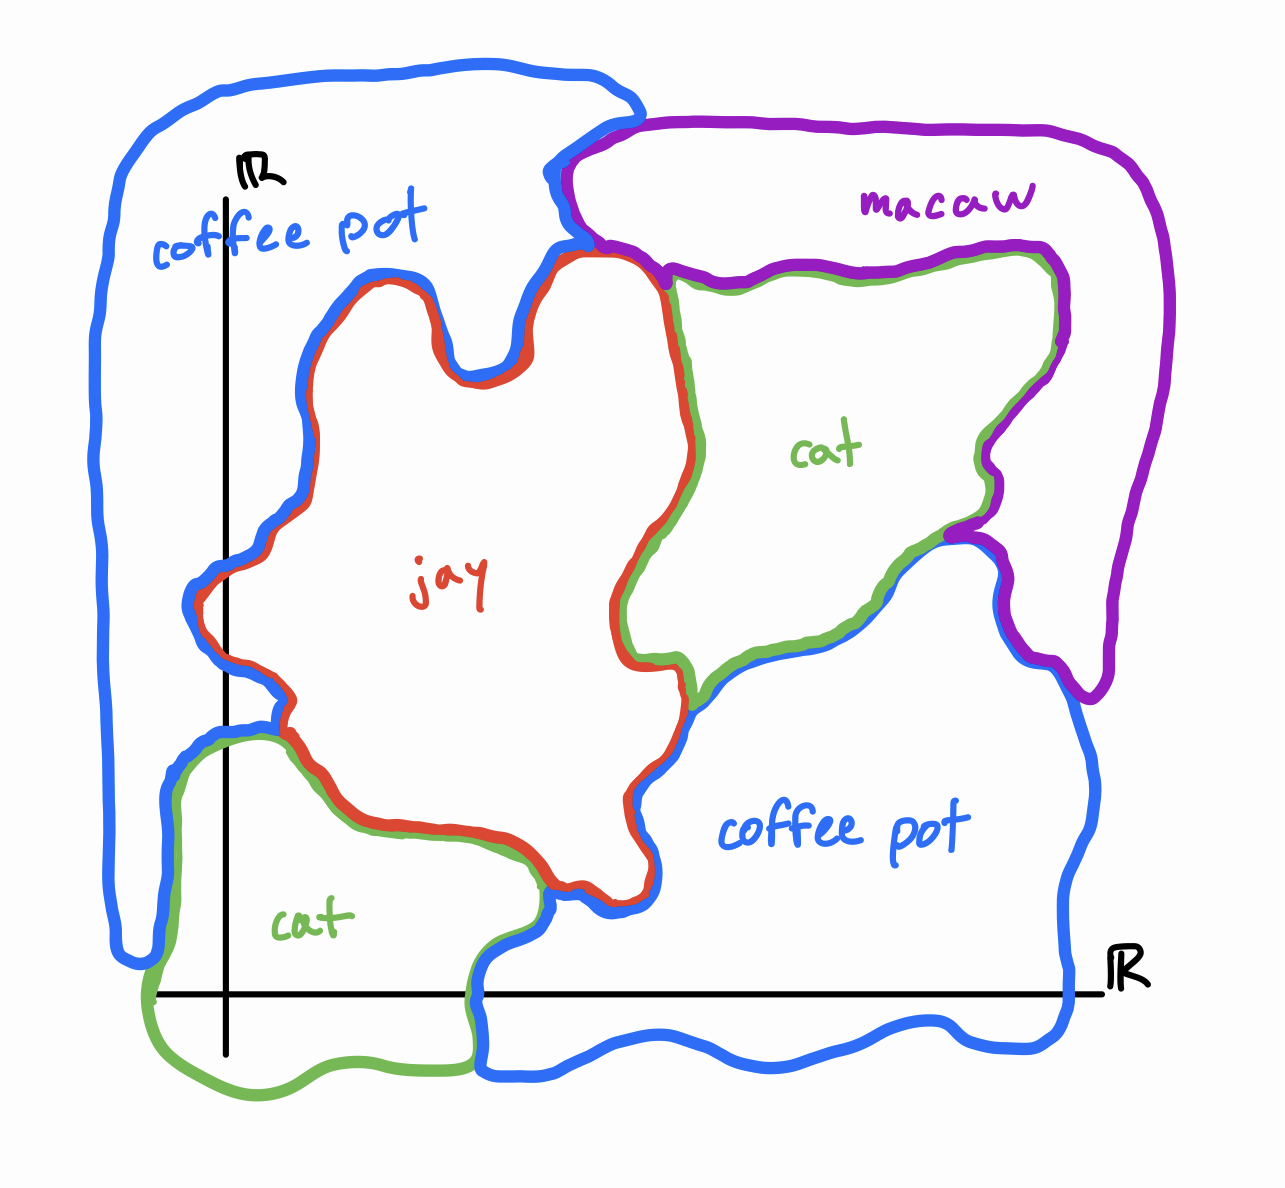 ℝ
coffee pot
macaw
cat
jay
coffee pot
cat
ℝ